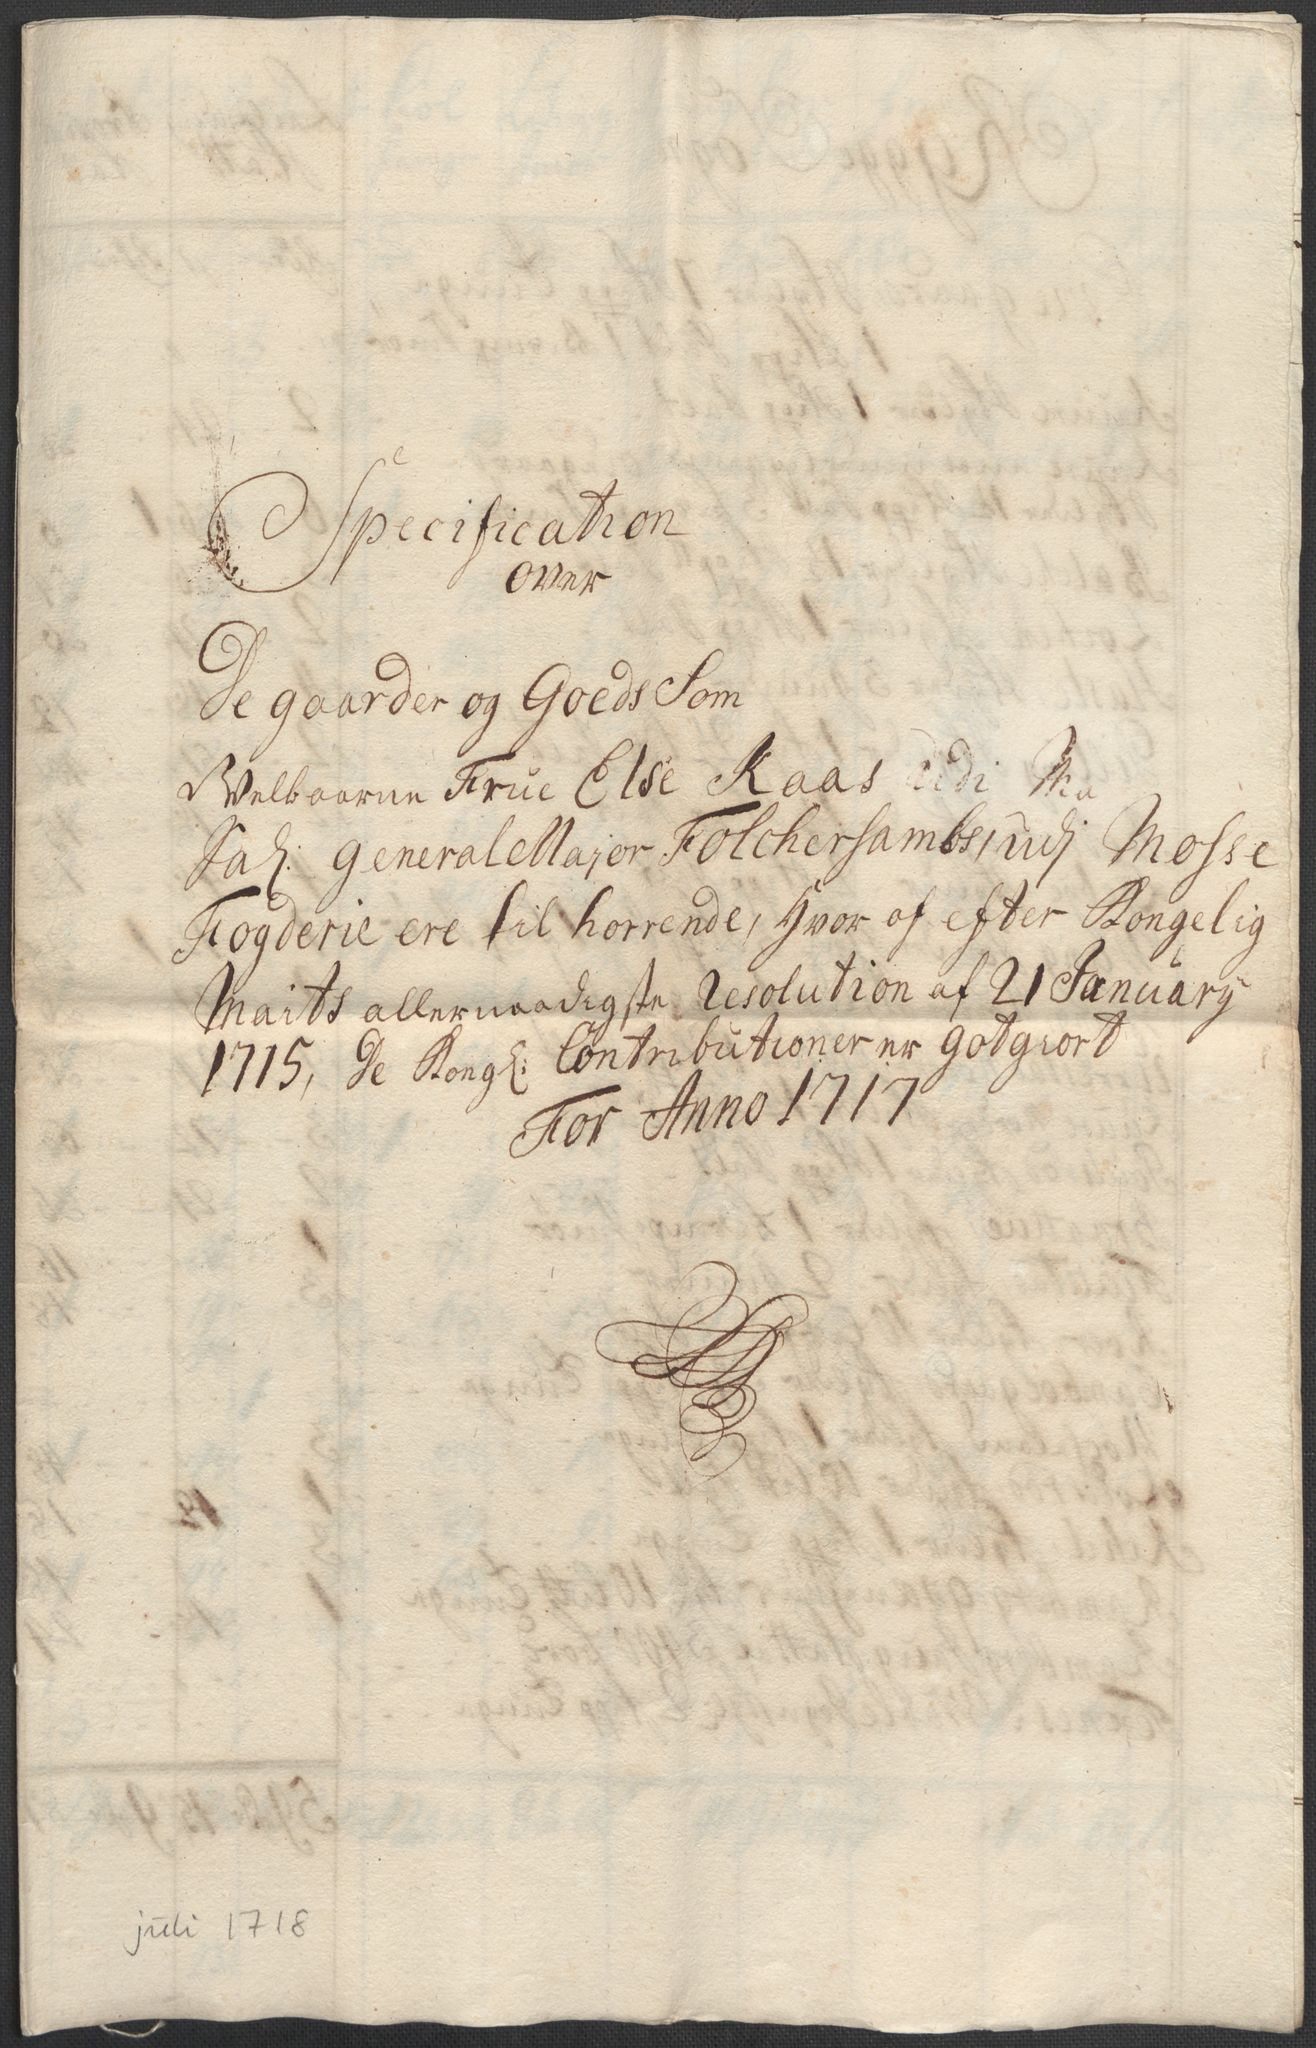 Specification
over
De gaarder og Goeds Som
Welbaarne Frue Else Kaas
Sal: general Major Folchersambs, udj Mosse
Fogderie ere til horrende, Hvor af efter Kongelig
Maits allernaadigste Resolution af 21 January
1715, De Kongl: Contributioner er godtgiort
For Anno 1717
juli 1718